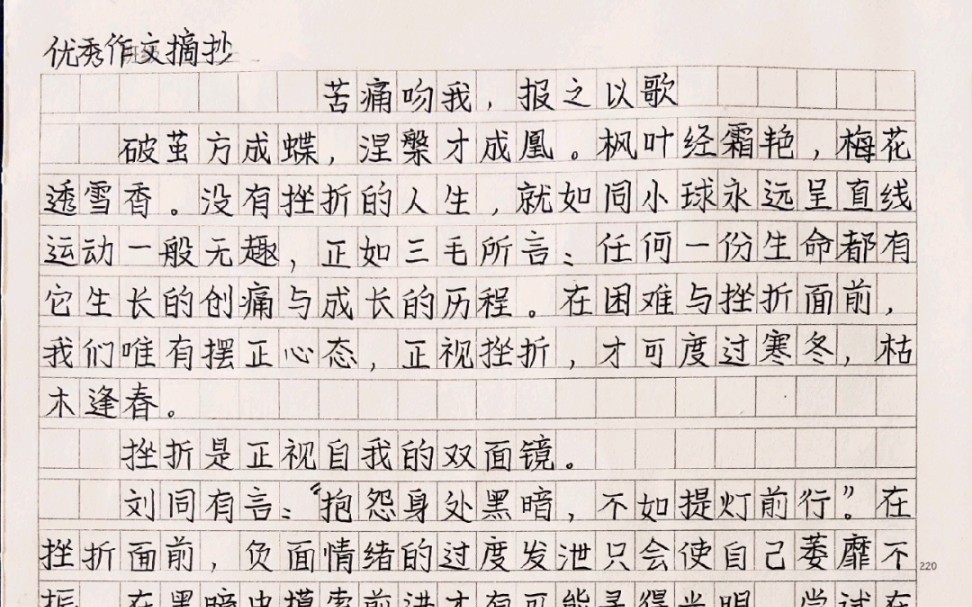 优秀作文摘抄
苦痛吻我，报之以歌
破茧方成蝶，涅槃才成凰。枫叶经霜艳，梅花
透雪香。没有挫折的人生，就如同小球永远呈直线
运动一般无趣，正如三毛所言：任何一份生命都有
它生长的创痛与成长的历程。在困难与挫折面前，
我们唯有摆正心态，正视挫折，才可度过寒冬，枯
木逢春。
挫折是正视自我的双面镜。
刘同有言：“抱怨身处黑暗，不如提灯前行”。在
挫折面前，负面情绪的过度发泄只会使自己萎靡不
220
振，在黑暗中摸索前进才有可能寻得光明，尝试在